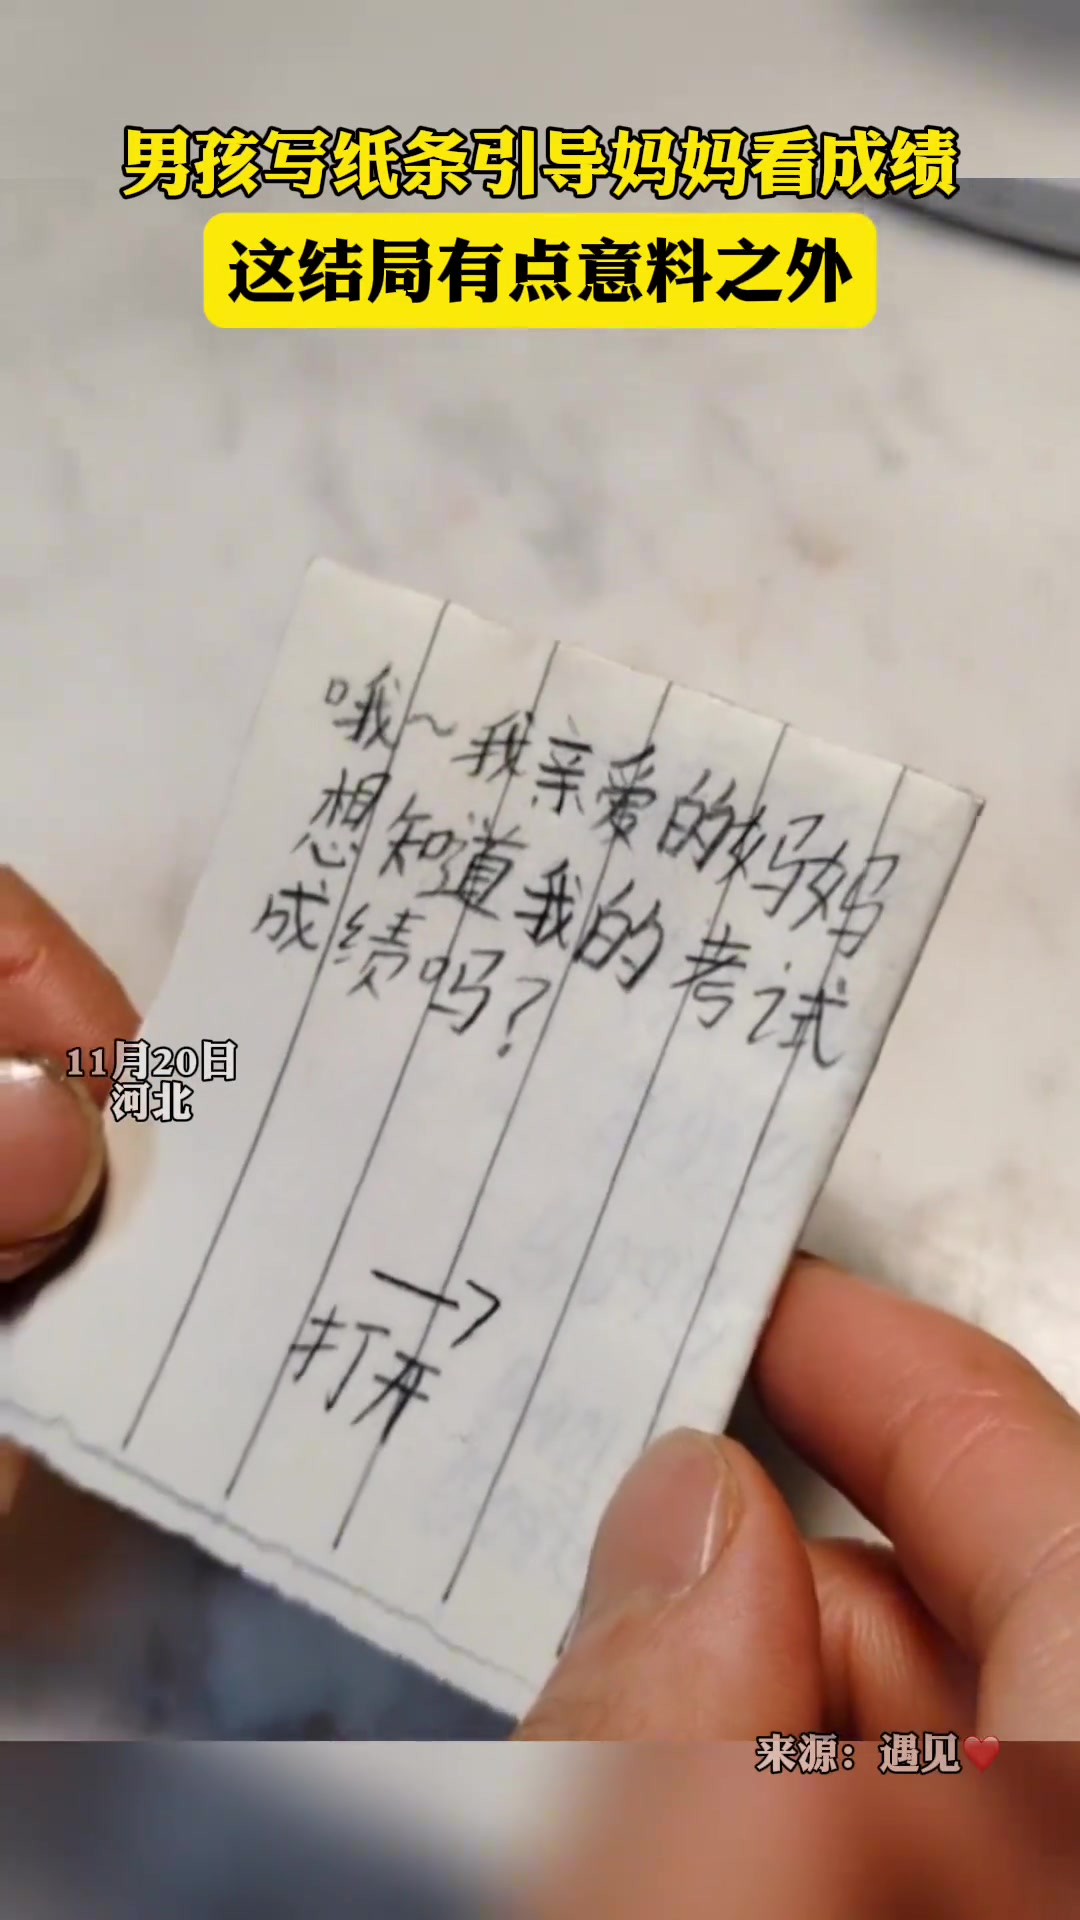 男孩写纸条引导妈妈看成绩
这结局有点意料之外
哦~我亲爱的妈妈
想知道我的考试
成绩吗?
→
打开
11月20日
河北
来源：遇见❤️